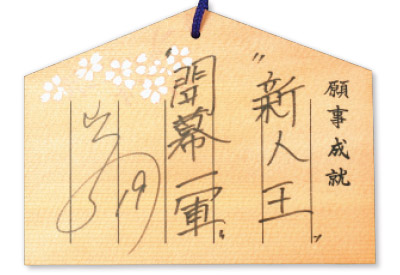 願事成就
"新人王"
"開幕一軍"
19